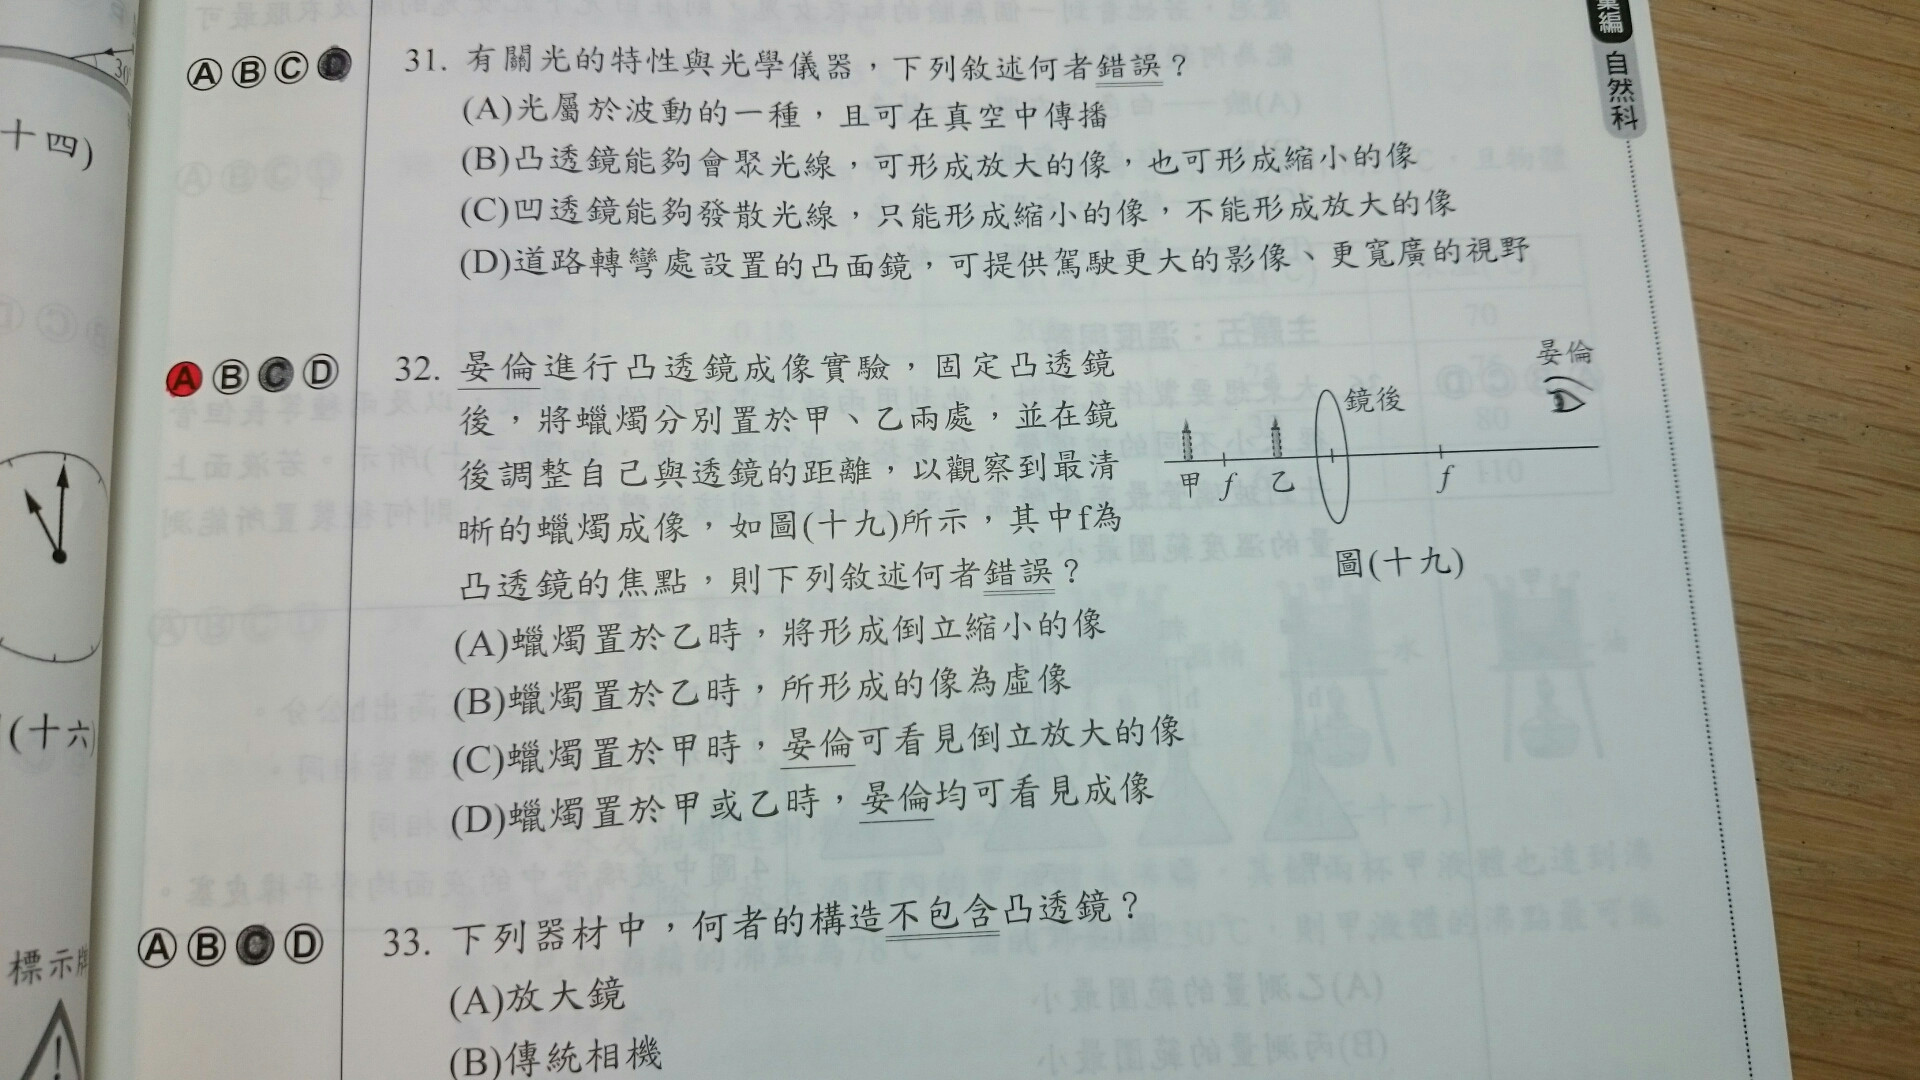 彙編
自然科
30°
十四)
(十六)
標示牌
!
Ⓐ Ⓑ Ⓒ
31. 有關光的特性與光學儀器，下列敘述何者錯誤？
(A)光屬於波動的一種，且可在真空中傳播
(B)凸透鏡能夠會聚光線，可形成放大的像，也可形成縮小的像
(C)凹透鏡能夠發散光線，只能形成縮小的像，不能形成放大的像
(D)道路轉彎處設置的凸面鏡，可提供駕駛更大的影像、更寬廣的視野
Ⓐ Ⓑ Ⓒ Ⓓ
32. 晏倫進行凸透鏡成像實驗，固定凸透鏡
後，將蠟燭分別置於甲、乙兩處，並在鏡
後調整自己與透鏡的距離，以觀察到最清
晰的蠟燭成像，如圖(十九)所示，其中f為
凸透鏡的焦點，則下列敘述何者錯誤？
(A)蠟燭置於乙時，將形成倒立縮小的像
(B)蠟燭置於乙時，所形成的像為虛像
(C)蠟燭置於甲時，晏倫可看見倒立放大的像
(D)蠟燭置於甲或乙時，晏倫均可看見成像
晏倫
鏡後
甲 f 乙 f
圖(十九)
Ⓐ Ⓑ Ⓒ Ⓓ
33. 下列器材中，何者的構造不包含凸透鏡？
(A)放大鏡
(B)傳統相機